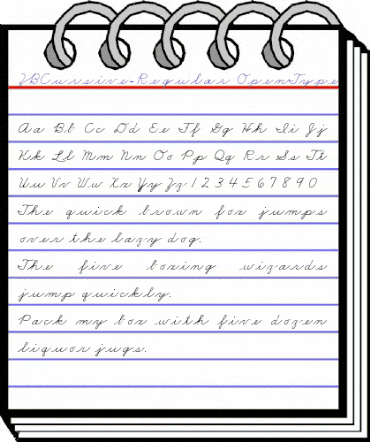 ZBCursive-Regular OpenType
Aa Bb Cc Dd Ee Ff Gg Hh Ii Jj
Kk Ll Mm Nn Oo Pp Qq Rr Ss Tt
Uu Vv Ww Xx Yy Zz 1 2 3 4 5 6 7 8 9 0
The quick brown fox jumps
over the lazy dog.
The five boxing wizards
jump quickly.
Pack my box with five dozen
liquor jugs.